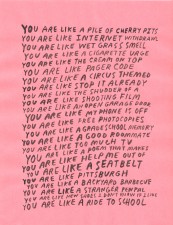 YOU ARE LIKE A PILE OF CHERRY PITS
YOU ARE LIKE INTERNET WITHDRAWL
YOU ARE LIKE WET GRASS SMELL
YOU ARE LIKE A CIGARETTE URGE
YOU ARE LIKE THE CREAM ON TOP
YOU ARE LIKE ANGER CODE
YOU ARE LIKE A CIRCUS THEMED
YOU ARE LIKE STOP IT ALREADY
YOU ARE LIKE THE SHUDDER OF A
YOU ARE LIKE SHOOTING FILM
YOU ARE LIKE AN OPEN GARAGE DOOR
YOU ARE LIKE MY PHONE IS OFF
YOU ARE LIKE FREE PHOTOCOPIES
YOU ARE LIKE A GRADE SCHOOL MEMORY
YOU ARE LIKE A GOOD ROOMMATE
YOU ARE LIKE TOO MUCH TV
YOU ARE LIKE A POEM THAT MAKES
YOU ARE LIKE HELP ME OUT OF
YOU ARE LIKE A SEATBELT
YOU ARE LIKE PITTSBURGH
YOU ARE LIKE A BACKYARD BARBECUE
YOU ARE LIKE A STRANGER PENPAL
YOU ARE LIKE NEW SHOES I DON'T
YOU ARE LIKE A RIDE TO SCHOOL